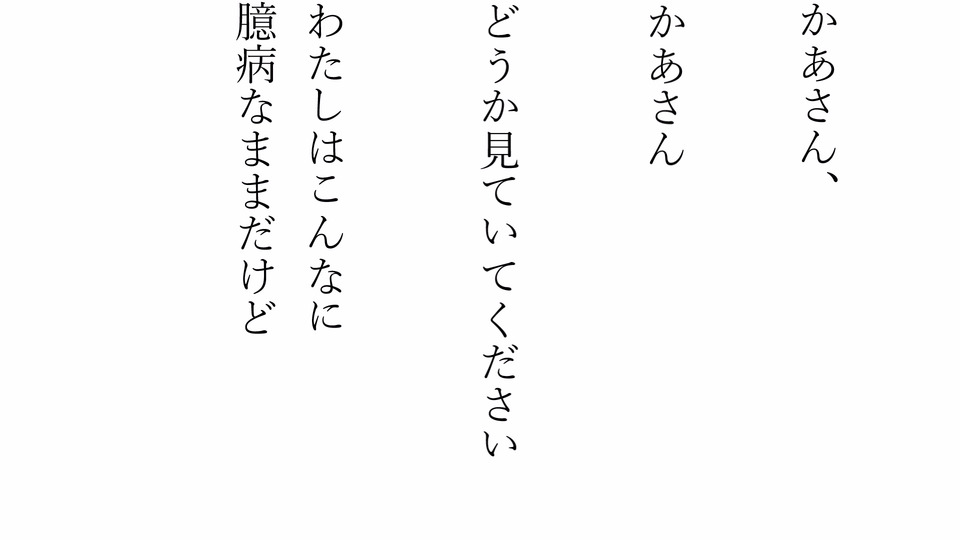 かあさん、
かあさん
どうか見ていてください
わたしはこんなに
臆病なままだけど